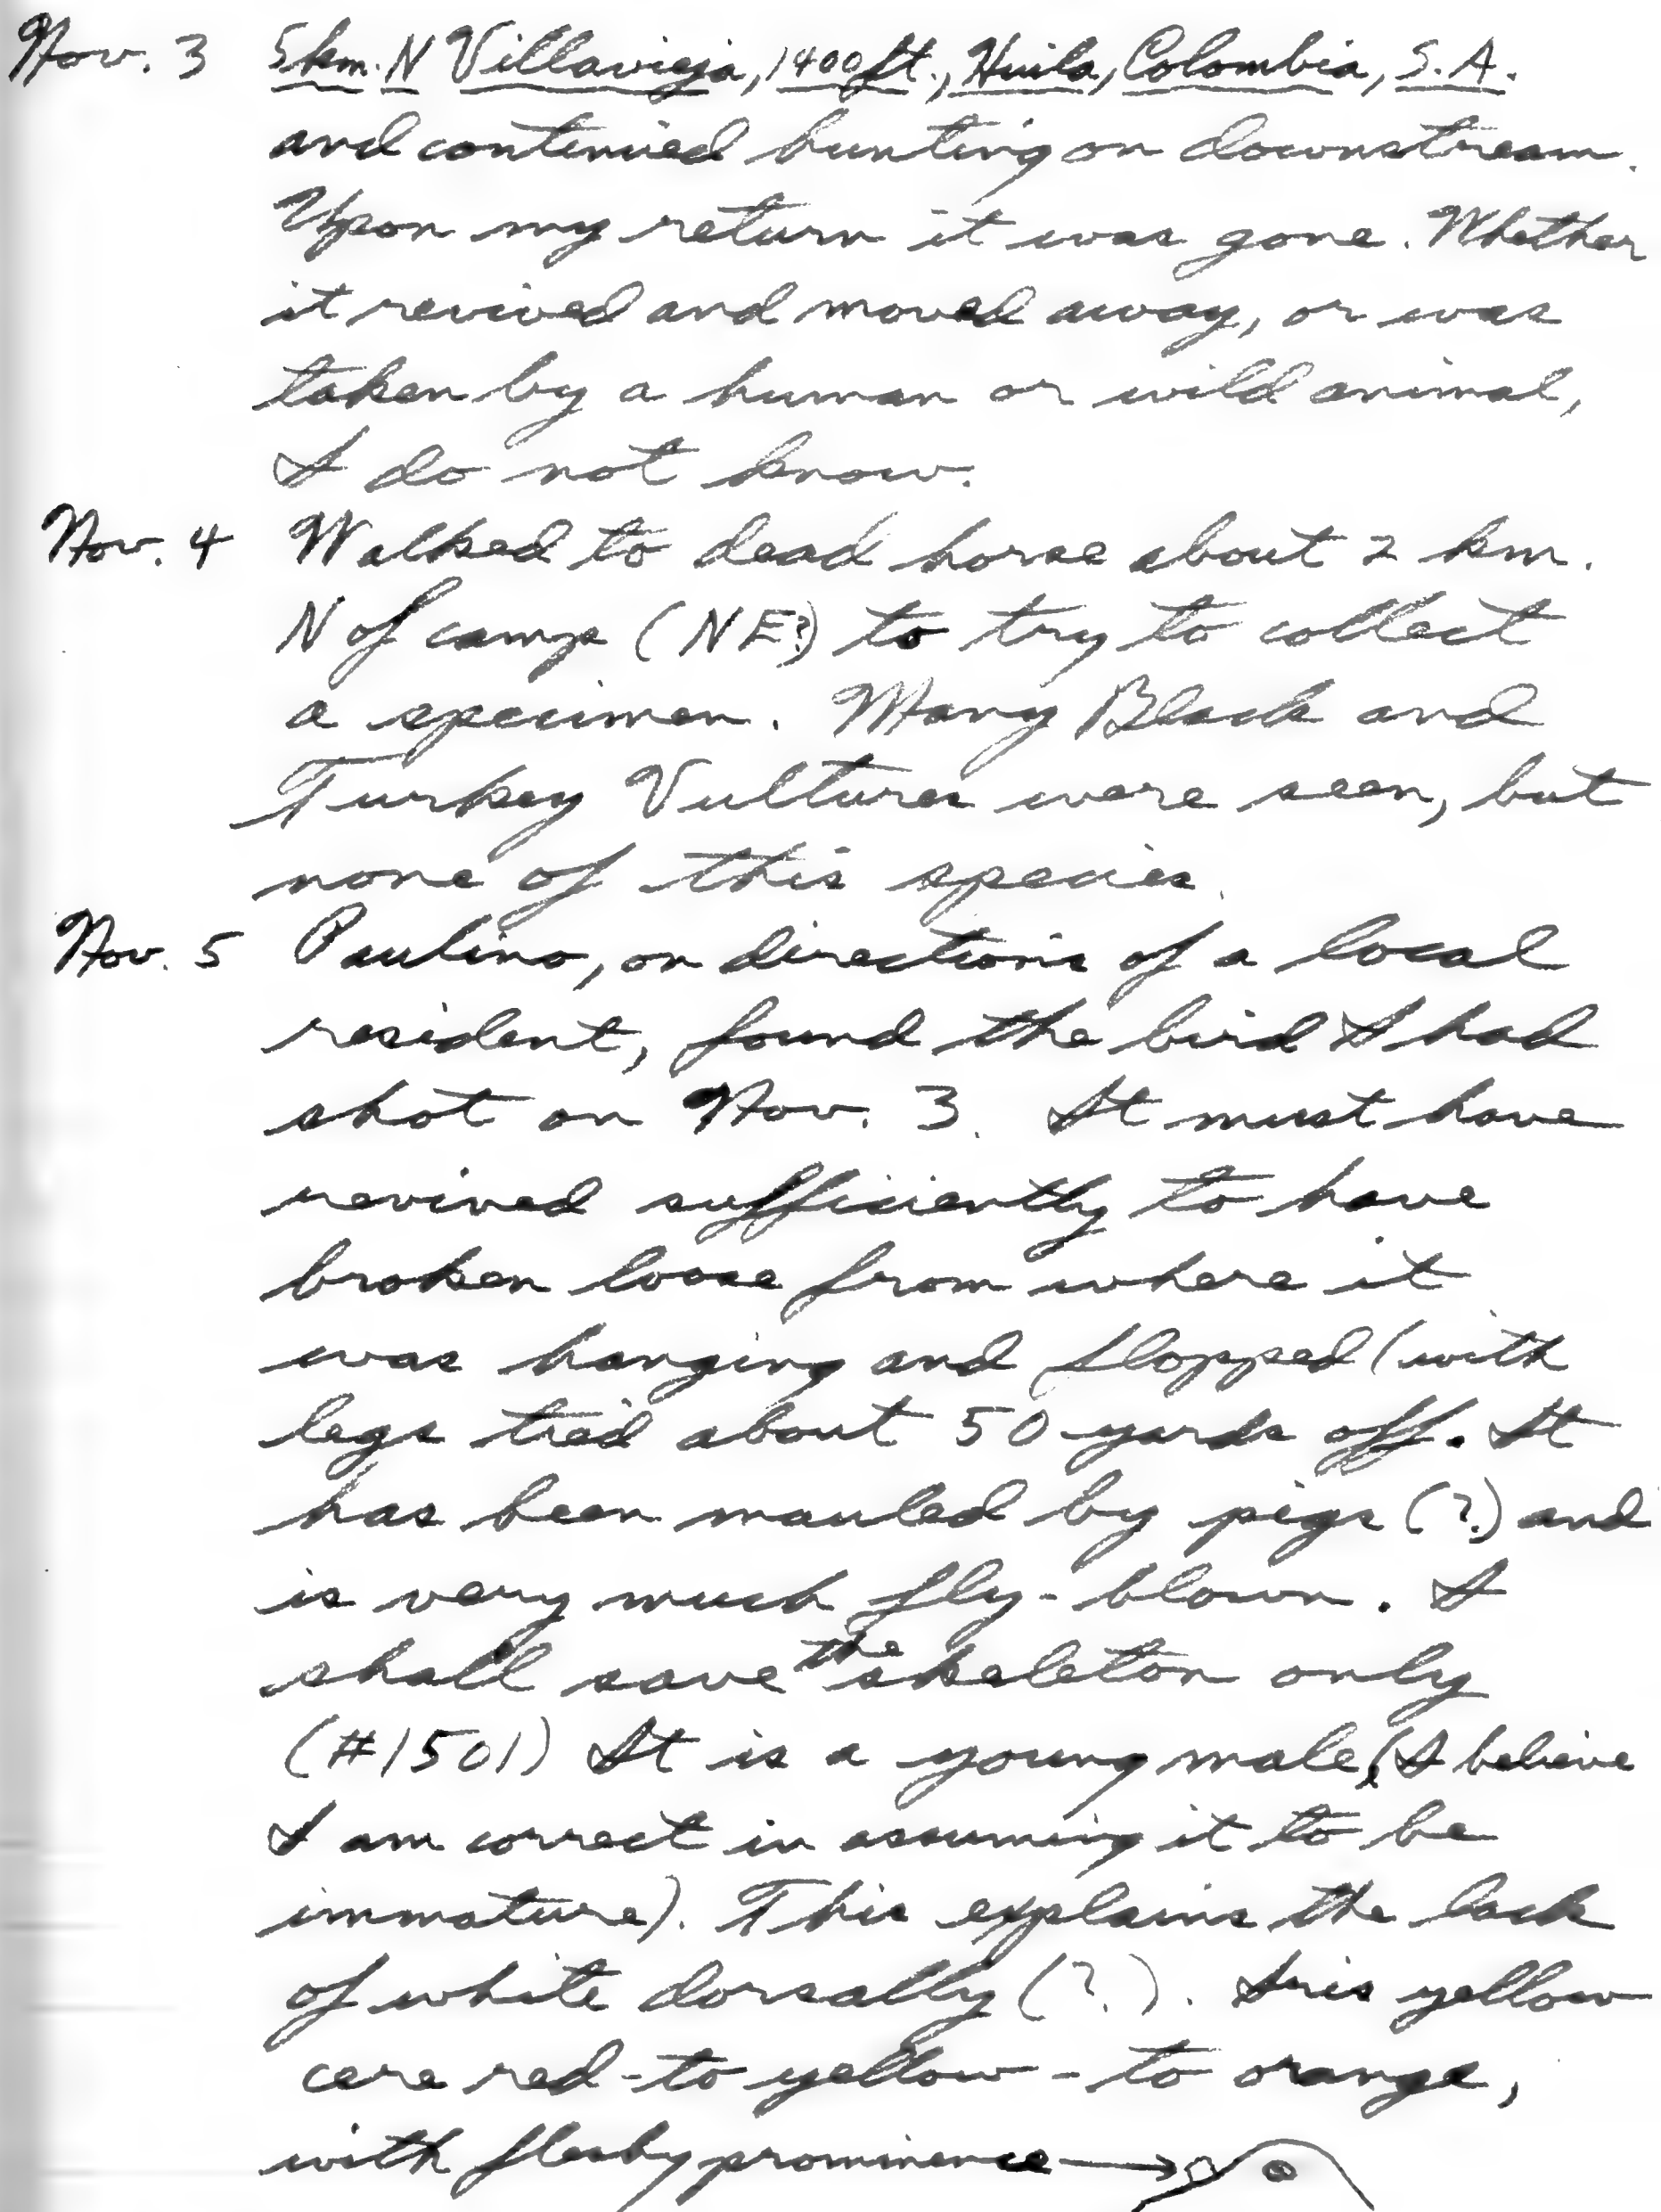 Nov. 3 5 km. N Villavieja, 1400 ft., Huila, Colombia, S.A.
and continued hunting on downstream.
Upon my return it was gone. Whether
it revived and moved away, or was
taken by a human or wild animal,
I do not know.
Nov. 4 Walked to dead horse about 2 km.
N of camp (NE?) to try to collect
a specimen. Many Black and
Turkey Vultures were seen, but
none of this species.
Nov. 5 Paulino, on directions of a local
resident, found the bird I had
shot on Nov. 3. It must have
revived sufficiently to have
broken loose from where it
was hanging and flopped (with
legs tied about 50 yards off. It
has been mauled by pigs (?) and
is very much fly-blown. I
shall save the skeleton only
(#1501) It is a young male, (I believe
I am correct in assuming it to be
immature). This explains the lack
of white dorsally (?). Iris yellow
cere red-to yellow-to orange,
with fleshy prominence